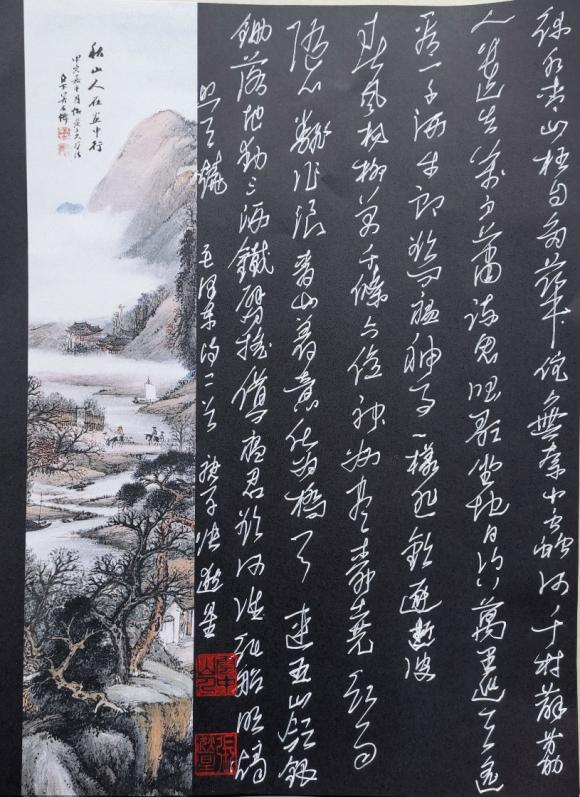 绿水青山枉自多華佗無奈小虫何千村薜荔
人遗矢萬户蕭疏鬼唱歌坐地日行八萬里巡天遥
看一千河牛郎欲问瘟神事一樣悲歡逐逝波
春風楊柳萬千條六億神州盡舜堯紅雨
随心翻作浪青山着意化为橋天連五岭銀
鋤落地動三河鐵臂摇借問瘟君欲何往纸船明燭
照天燒 毛泽東詩二首 庚子
秋山人在画中行
甲寅嘉平月仿